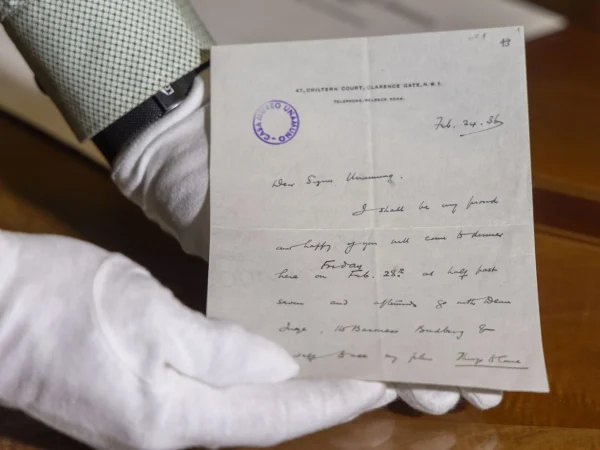 47, CHILTERN COURT, CLARENCE GATE, N.W.1.
TELEPHONE,
CASA MUSEO UNAMUNO
Feb. 24. 36
Dear Signor Unamuno.
I shall be very proud
and happy if you will come to dinner
here on Friday Feb. 28th at half past
seven and afterwards go with Dean
Inge, the Baroness Budberg &
my film Things to Come